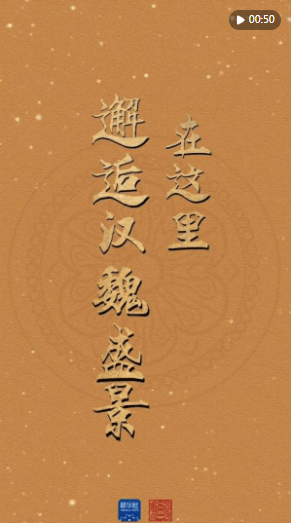 00:50
在这里
邂逅汉魏盛景
新华社